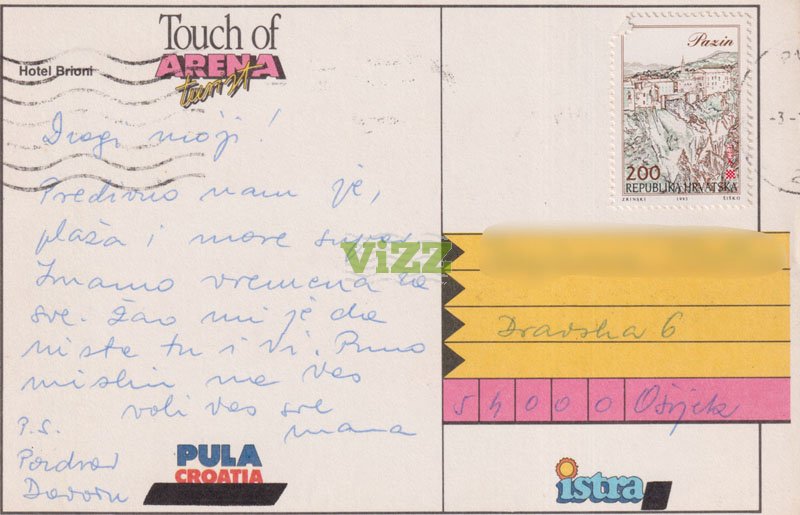 Touch of
ARENA
turist
Hotel Brioni
Dragi moji!
Predivno nam je,
plaža i more super.
Imamo vremena za
sve. Žao mi je da
niste tu i vi. Puno
mislim na Vas
voli vas sve
mama
P.S.
Pozdrav
Davoru
PULA
CROATIA
ViZZ
Pazin
200
REPUBLIKA HRVATSKA
ZRINSKI 1993 ŠIŠKO
Dravska 6
54000 Osijek
istra